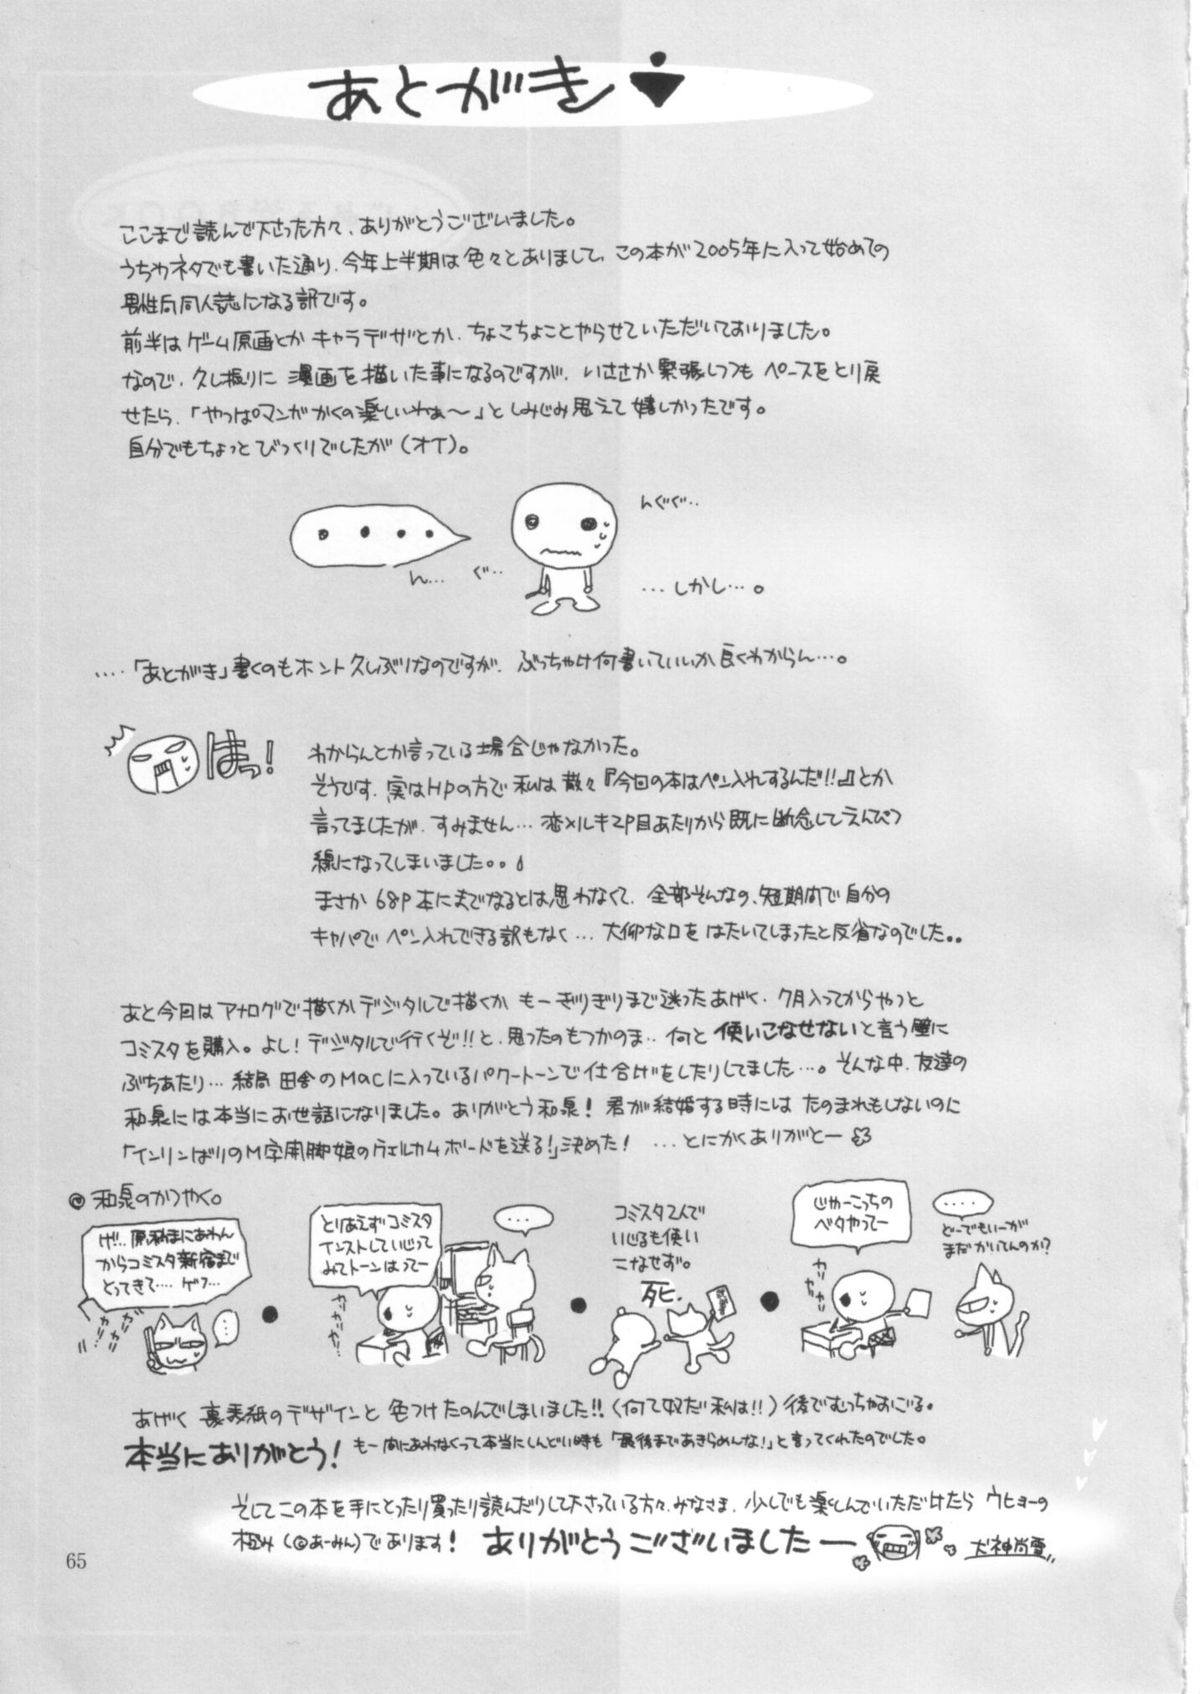 あとがき
ここまで読んで下さった方々、ありがとうございました。
うちわネタでも書いた通り、今年上半期は色々とありまして、この本が2005年に入って始めての
男性向同人誌になる訳です。
前半はゲーム原画とかキャラデザとか、ちょこちょことやらせていただいておりました。
なので、久し振りに漫画を描いた事になるのですが、いささか緊張しつつもペースをとり戻
せたら、「やっぱマンガかくの楽しいわぁ〜」としみじみ思えて嬉しかったです。
自分でもちょっとびっくりでしたが(オイ)。
んぐぐ…
ん… ぐ…
…しかし…。
….「あとがき」書くのもホント久しぶりなのですが、ぶっちゃけ何書いていいか良くわからん…。
はっ!
わからんとか言っている場合じゃなかった。
そうです、実はHPの方で私は散々『今回の本はペン入れするんだ!!』とか
言ってましたが、すみません…恋×ルキ2P目あたりから既に断念してえんぴつ
線になってしまいました。。
まさか68P本にまでなるとは思わなくて、全部そんなの、短期間で自分の
キャパでペン入れできる訳もなく…大仰な口をはたいてしまったと反省なのでした。。
あと今回はアナログで描くかデジタルで描くかもーぎりぎりまで迷ったあげく、7月入ってからやっと
コミスタを購入。よし!デジタルで行くぞ!!と、思ったのもつかのま‥何と使いこなせないと言う壁に
ぶちあたり…結局田舎のMacに入っているパワートーンで仕上げをしたりしてました…。そんな中、友達の
和泉には本当にお世話になりました。ありがとう和泉!君が結婚する時にはたのまれもしないのに
「インリンばりのM字開脚娘のウェルカムボードを送る!」決めた! …とにかくありがとー
◎和泉のかつやく。
げ!!.原稿まにあわん
からコミスタ新宿まで
とってきて…. ゲフ…
…
とりあえずコミスタ
インストしていじって
みてトーンはってー
....
カリカリ
コミスタ2人で
いじるも使い
こなせず。
死.
じゃーこっちの
ベタやってー
カリカリ
....
どーでもいーが
まだかいてんのか?
あげく裏表紙のデザインと色つけたのんでしまいました!!(何て奴だ私は!!)後でむっちゃおごる。
本当にありがとう!もー間にあわなくって本当にしんどい時も「最後まであきらめんな!」と言ってくれたのでした。
そしてこの本を手にとったり買ったり読んだりして下さっている方々、みなさま、少しでも楽しんでいただけたらウヒョーの
極み(©あーみん)であります!ありがとうございましたー 犬神尚雪
65